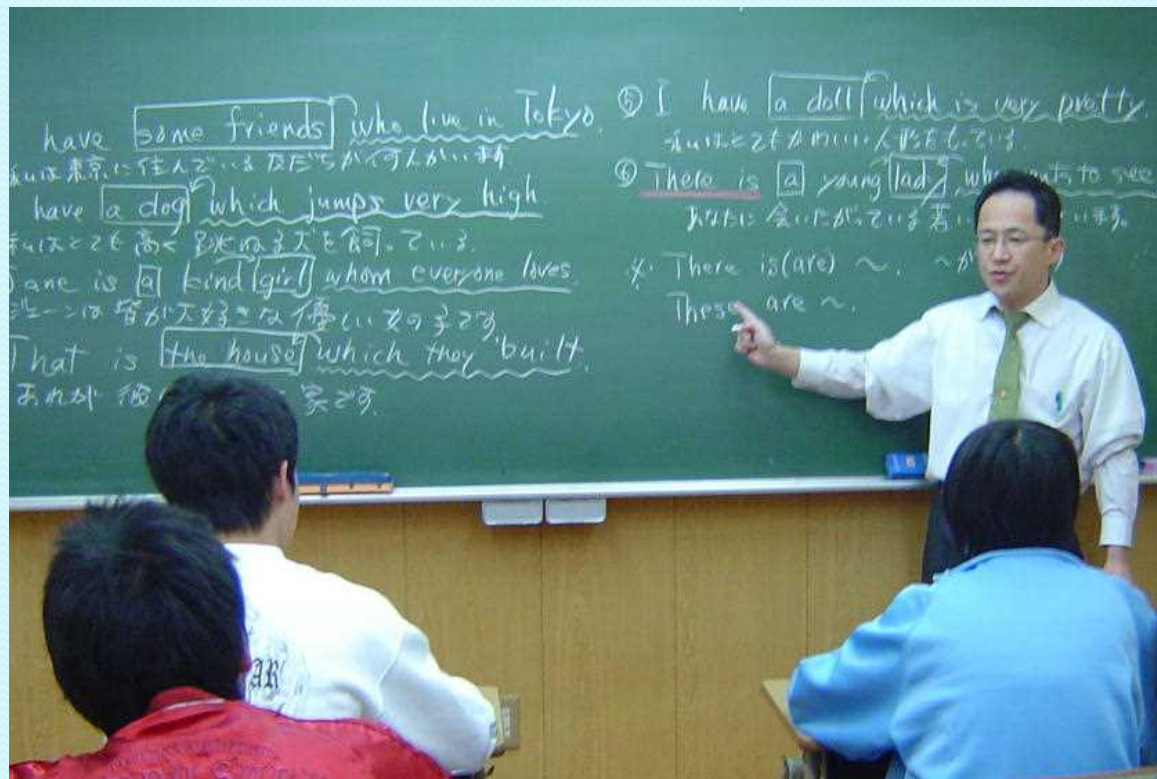 have some friends who live in Tokyo.
私は東京に住んでいる友だちが何人かいます
have a dog which jumps very high.
私はとても高く跳ねる犬を飼っている.
Jane is a kind girl whom everyone loves.
ジェーンは皆が大好きな優しい女の子です.
That is the house which they built.
あれが彼 家です.
⑤ I have a doll which is very pretty.
私はとてもかわいい人形をもっている.
⑥ There is a young lady who to see
あなたに会いたがっている若い います。
※ There is(are) ～. ～が
These are ～.
AR